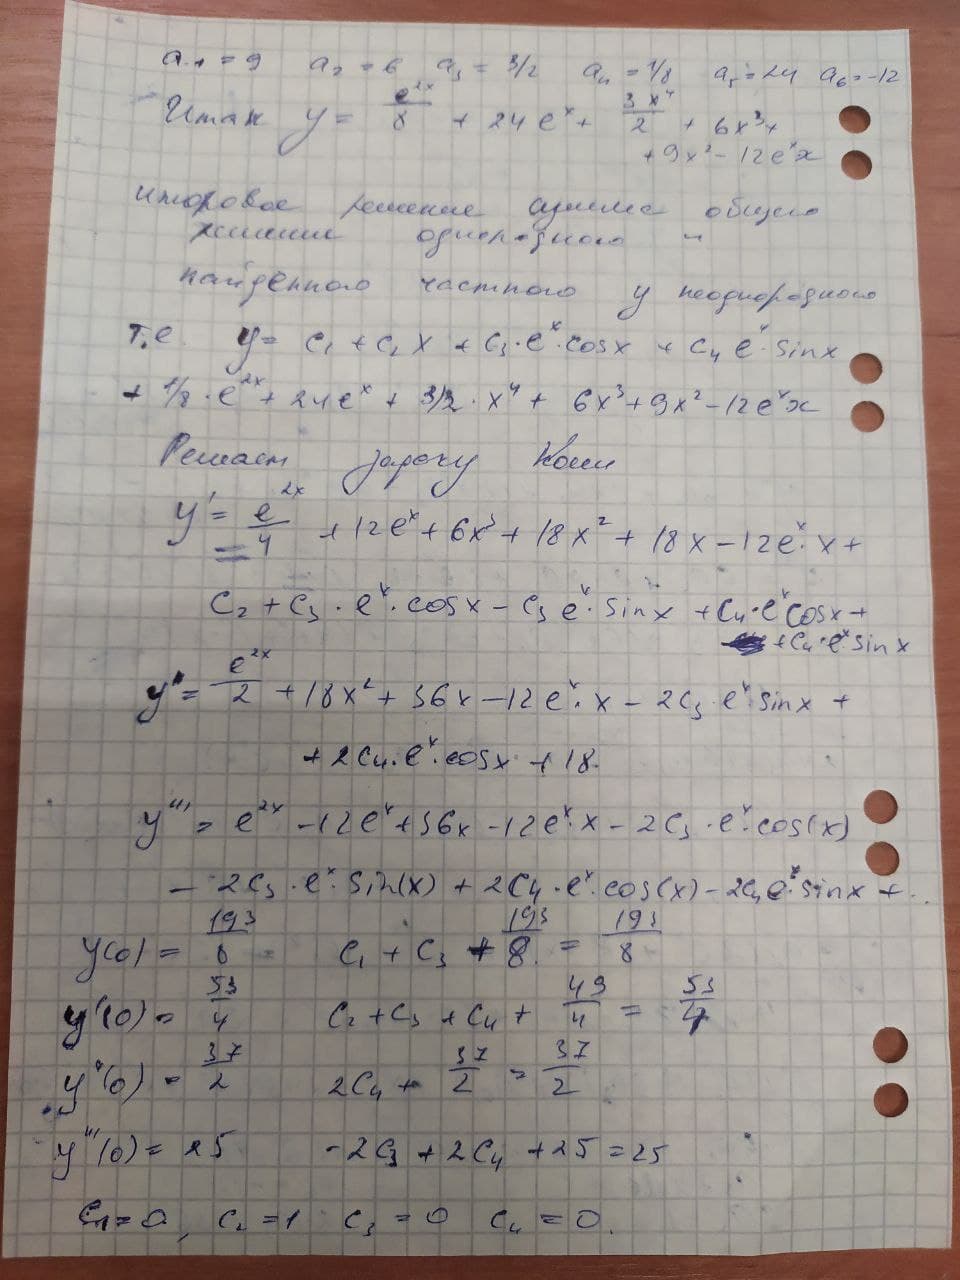 a₁ = 9 a₂ = 6 a₃ = 3/2 a₄ = 1/8 a₅ = 24 a₆ = -12
Итак y = e²ˣ/8 + 24eˣ + 3x⁴/2 + 6x³ +
+ 9x² - 12eˣx
итоговое решение сумма общего
решения однородного и
найденного частного у неоднородного
т.е. y = C₁ + C₂x + C₃·eˣ·cosx + C₄eˣ·sinx
+ 1/8·e²ˣ + 24eˣ + 3/2·x⁴ + 6x³ + 9x² - 12eˣx
Решаем задачу Коши
y' = e²ˣ/4 + 12eˣ + 6x³ + 18x² + 18x - 12eˣ·x +
C₂ + C₃·eˣ·cosx - C₃eˣ·sinx + C₄·eˣcosx +
+ C₄·eˣsinx
y'' = e²ˣ/2 + 18x² + 36x - 12eˣ·x - 2C₃·eˣsinx +
+ 2C₄·eˣ·cosx + 18.
y''' = e²ˣ - 12eˣ + 36x - 12eˣ·x - 2C₃·eˣ·cos(x)
- 2C₃·eˣ·sin(x) + 2C₄·eˣ·cos(x) - 2C₄eˣ·sinx + ..
y(0) = 193/8 C₁ + C₃ + 193/8 = 193/8
y'(0) = 53/4 C₂ + C₃ + C₄ + 49/4 = 53/4
y''(0) = 37/2 2C₄ + 37/2 = 37/2
y'''(0) = 25 -2C₃ + 2C₄ + 25 = 25
C₁ = 0, C₂ = 1 C₃ = 0 C₄ = 0.